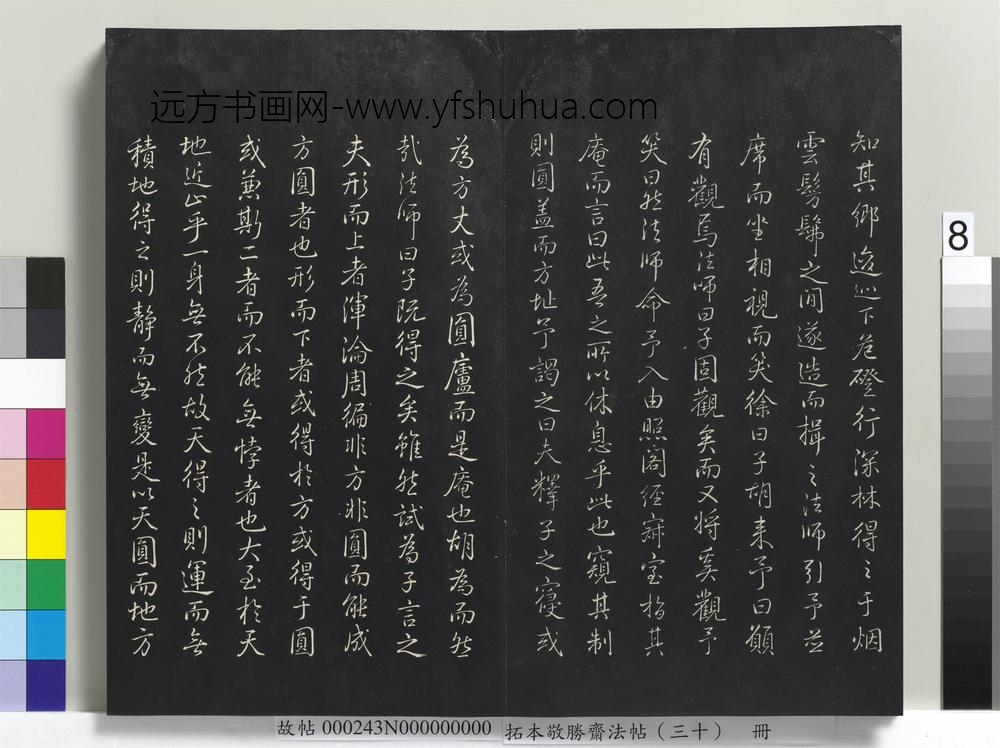 远方书画网-www.yfshuhua.com
知其鄉迨巡下危磴行深林得之于烟
雲髣髴之间遂造而揖之法師引予並
席而坐相視而笑徐曰子胡来予曰願
有觀焉法師曰子固觀矣而又将奚觀予
笑曰然法師命予入由照閣經寂室指其
庵而言曰此吾之所以休息乎此也窺其制
則圓盖而方址予謁之曰夫釋子之寢或
為方丈或為圓廬而是庵也胡為而然
哉法師曰子既得之矣雖然試為子言之
夫形而上者渾淪周徧非方非圓而能成
方圓者也形而下者或得於方或得于圓
或蒹斯二者而不能無悖者也大至於天
地近止乎一身無不然故天得之則運而無
積地得之則静而無變是以天圓而地方
8
故帖 000243N000000000
拓本敬勝齋法帖（三十） 冊